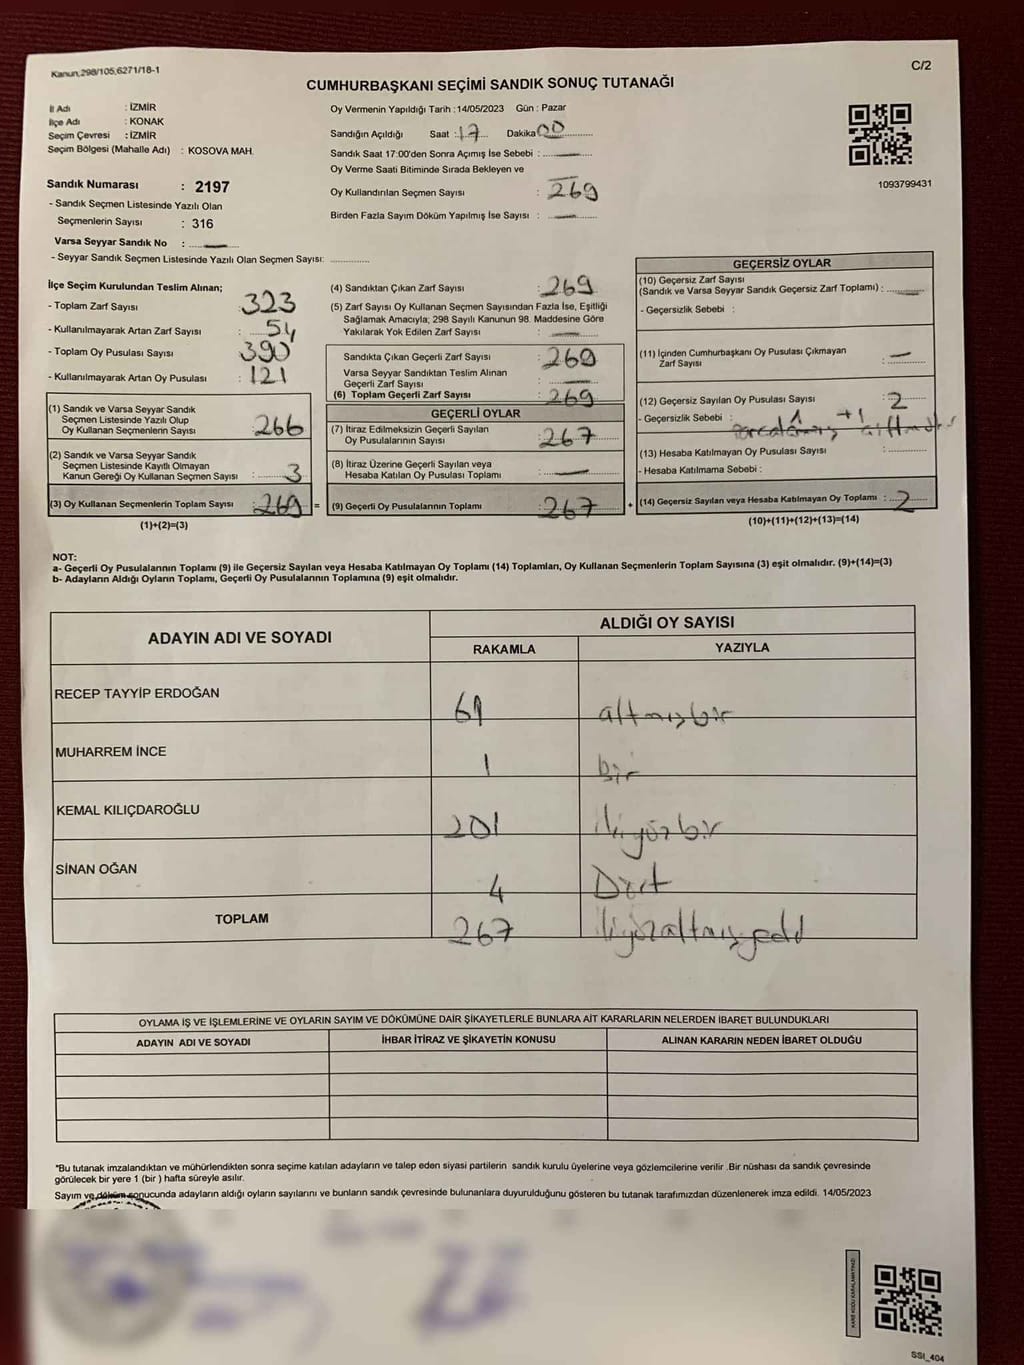 Kanun;298/105;6271/18-1
C/2
CUMHURBAŞKANI SEÇİMİ SANDIK SONUÇ TUTANAĞI
İl Adı : İZMİR
İlçe Adı : KONAK
Seçim Çevresi : İZMİR
Seçim Bölgesi (Mahalle Adı) : KOSOVA MAH.
Sandık Numarası : 2197
- Sandık Seçmen Listesinde Yazılı Olan
Seçmenlerin Sayısı : 316
Varsa Seyyar Sandık No :
- Seyyar Sandık Seçmen Listesinde Yazılı Olan Seçmen Sayısı:
Oy Vermenin Yapıldığı Tarih :14/05/2023 Gün : Pazar
Sandığın Açıldığı Saat : 17 Dakika 00
Sandık Saat 17:00'den Sonra Açımış İse Sebebi :
Oy Verme Saati Bitiminde Sırada Bekleyen ve
Oy Kullandırılan Seçmen Sayısı : 269
Birden Fazla Sayım Döküm Yapılmış İse Sayısı :
1093799431
İlçe Seçim Kurulundan Teslim Alınan;
- Toplam Zarf Sayısı 323
- Kullanılmayarak Artan Zarf Sayısı : 54
- Toplam Oy Pusulası Sayısı 390
- Kullanılmayarak Artan Oy Pusulası : 121
(1) Sandık ve Varsa Seyyar Sandık
Seçmen Listesinde Yazılı Olup
Oy Kullanan Seçmenlerin Sayısı : 266
(2) Sandık ve Varsa Seyyar Sandık
Seçmen Listesinde Kayıtlı Olmayan
Kanun Gereği Oy Kullanan Seçmen Sayısı : 3
(3) Oy Kullanan Seçmenlerin Toplam Sayısı : 269 =
(1)+(2)=(3)
(4) Sandıktan Çıkan Zarf Sayısı : 269
(5) Zarf Sayısı Oy Kullanan Seçmen Sayısından Fazla İse, Eşitliği
Sağlamak Amacıyla; 298 Sayılı Kanunun 98. Maddesine Göre
Yakılarak Yok Edilen Zarf Sayısı :
Sandıkta Çıkan Geçerli Zarf Sayısı : 269
Varsa Seyyar Sandıktan Teslim Alınan
Geçerli Zarf Sayısı :
(6) Toplam Geçerli Zarf Sayısı : 269
GEÇERLİ OYLAR
(7) İtiraz Edilmeksizin Geçerli Sayılan
Oy Pusulalarının Sayısı : 267
(8) İtiraz Üzerine Geçerli Sayılan veya
Hesaba Katılan Oy Pusulası Toplamı :
(9) Geçerli Oy Pusulalarının Toplamı : 267 +
GEÇERSİZ OYLAR
(10) Geçersiz Zarf Sayısı
(Sandık ve Varsa Seyyar Sandık Geçersiz Zarf Toplamı) :
- Geçersizlik Sebebi :
(11) İçinden Cumhurbaşkanı Oy Pusulası Çıkmayan
Zarf Sayısı :
(12) Geçersiz Sayılan Oy Pusulası Sayısı : 2
- Geçersizlik Sebebi : 1 +1
(13) Hesaba Katılmayan Oy Pusulası Sayısı :
- Hesaba Katılmama Sebebi :
(14) Geçersiz Sayılan veya Hesaba Katılmayan Oy Toplamı : 2
(10)+(11)+(12)+(13)=(14)
NOT:
a- Geçerli Oy Pusulalarının Toplamı (9) ile Geçersiz Sayılan veya Hesaba Katılmayan Oy Toplamı (14) Toplamları, Oy Kullanan Seçmenlerin Toplam Sayısına (3) eşit olmalıdır. (9)+(14)=(3)
b- Adayların Aldığı Oyların Toplamı, Geçerli Oy Pusulalarının Toplamına (9) eşit olmalıdır.
ADAYIN ADI VE SOYADI
ALDIĞI OY SAYISI
RAKAMLA YAZIYLA
RECEP TAYYİP ERDOĞAN 61 altmışbir
MUHARREM İNCE 1 bir
KEMAL KILIÇDAROĞLU 201 ikiyüzbir
SİNAN OĞAN 4 Dört
TOPLAM 267 ikiyüzaltmışyedi
OYLAMA İŞ VE İŞLEMLERİNE VE OYLARIN SAYIM VE DÖKÜMÜNE DAİR ŞİKAYETLERLE BUNLARA AİT KARARLARIN NELERDEN İBARET BULUNDUKLARI
ADAYIN ADI VE SOYADI İHBAR İTİRAZ VE ŞİKAYETİN KONUSU ALINAN KARARIN NEDEN İBARET OLDUĞU
*Bu tutanak imzalandıktan ve mühürlendikten sonra seçime katılan adayların ve talep eden siyasi partilerin sandık kurulu üyelerine veya gözlemcilerine verilir .Bir nüshası da sandık çevresinde
görülecek bir yere 1 (bir ) hafta süreyle asılır.
Sayım ve döküm sonucunda adayların aldığı oyların sayılarını ve bunların sandık çevresinde bulunanlara duyurulduğunu gösteren bu tutanak tarafımızdan düzenlenerek imza edildi. 14/05/2023
KARE KODU KARALAMAYINIZ!
SSI_404